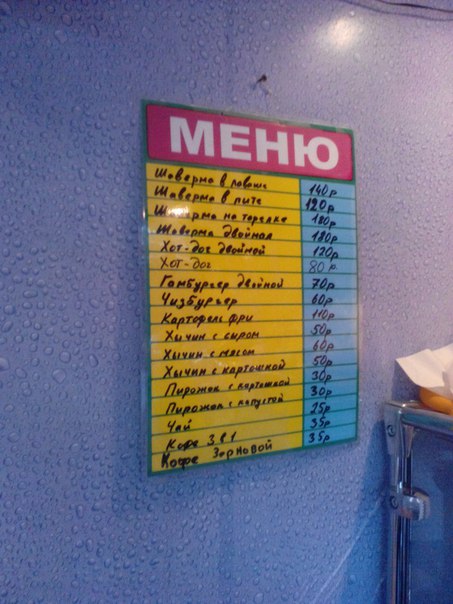 МЕНЮ
Шаверма в лаваше 140р
Шаверма в пите 120р
Шаверма на тарелке 180р
Шаверма двойная 180р
Хот-дог двойной 120р
Хот-дог 80р
Гамбургер двойной 70р
Чизбургер 60р
Картофель фри 110р
Хычин с сыром 50р
Хычин с мясом 60р
Хычин с картошкой 50р
Пирожок с картошкой 30р
Пирожок с капустой 30р
Чай 25р
Кофе 3 в 1 35р
Кофе Зерновой 35р